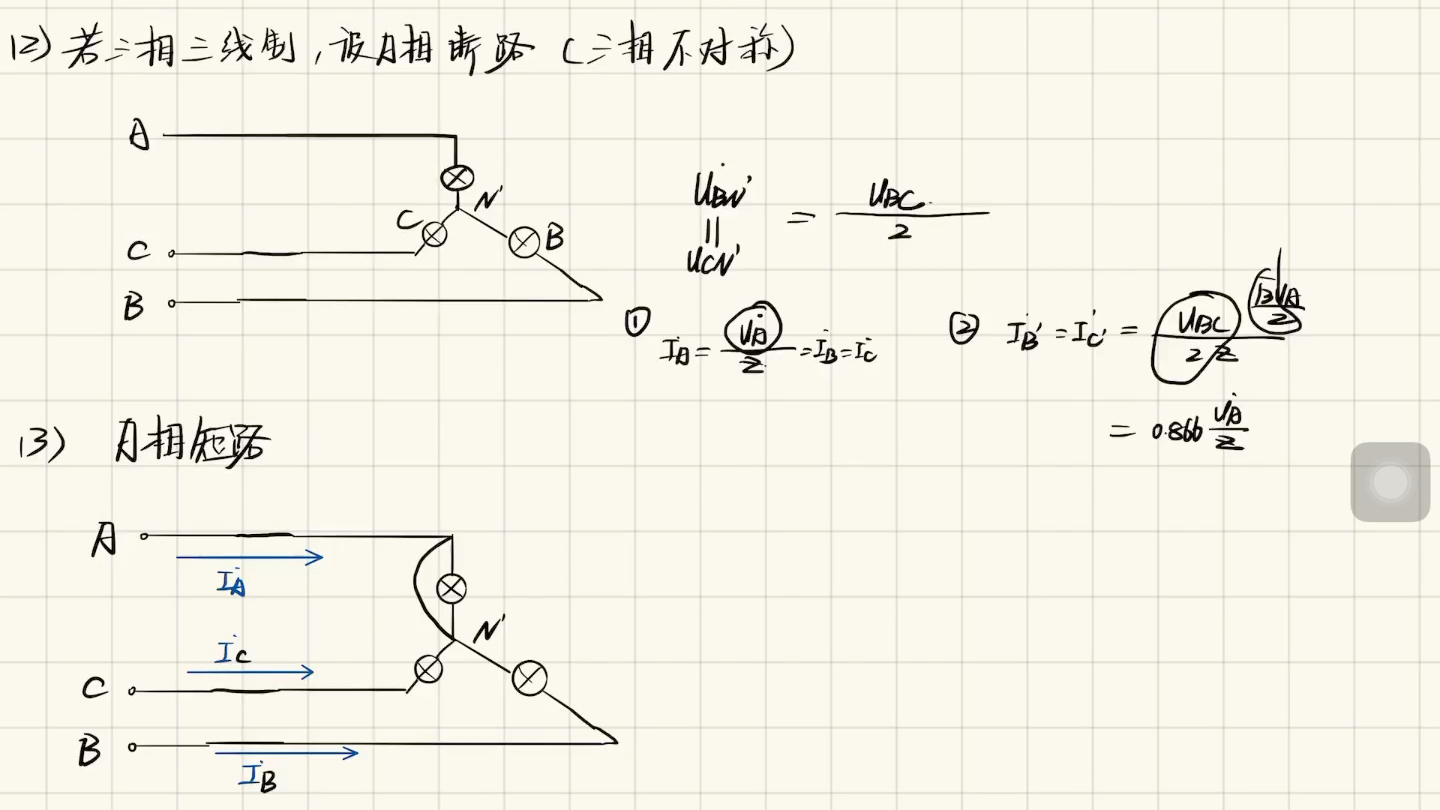 (2) 若三相三线制,设A相断路 (三相不对称)
A
N'
C
B
C
B
U̇BN' = UCN' = UBC / 2
① İA = U̇A / Z = İB = İC
② İB' = İC' = UBC / 2Z
√3UA / 2
= 0.866 U̇A / Z
(3) A相短路
A
İA
N'
İC
C
B
İB